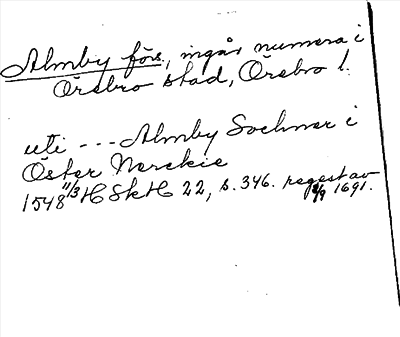 Almby förs., ingår numera i
Örebro stad, Örebro l.
uti --- Almby Sochner i
Öster Nerckie
1548 11/3 HSkH 22, s. 346. regest av
4/9 1691.